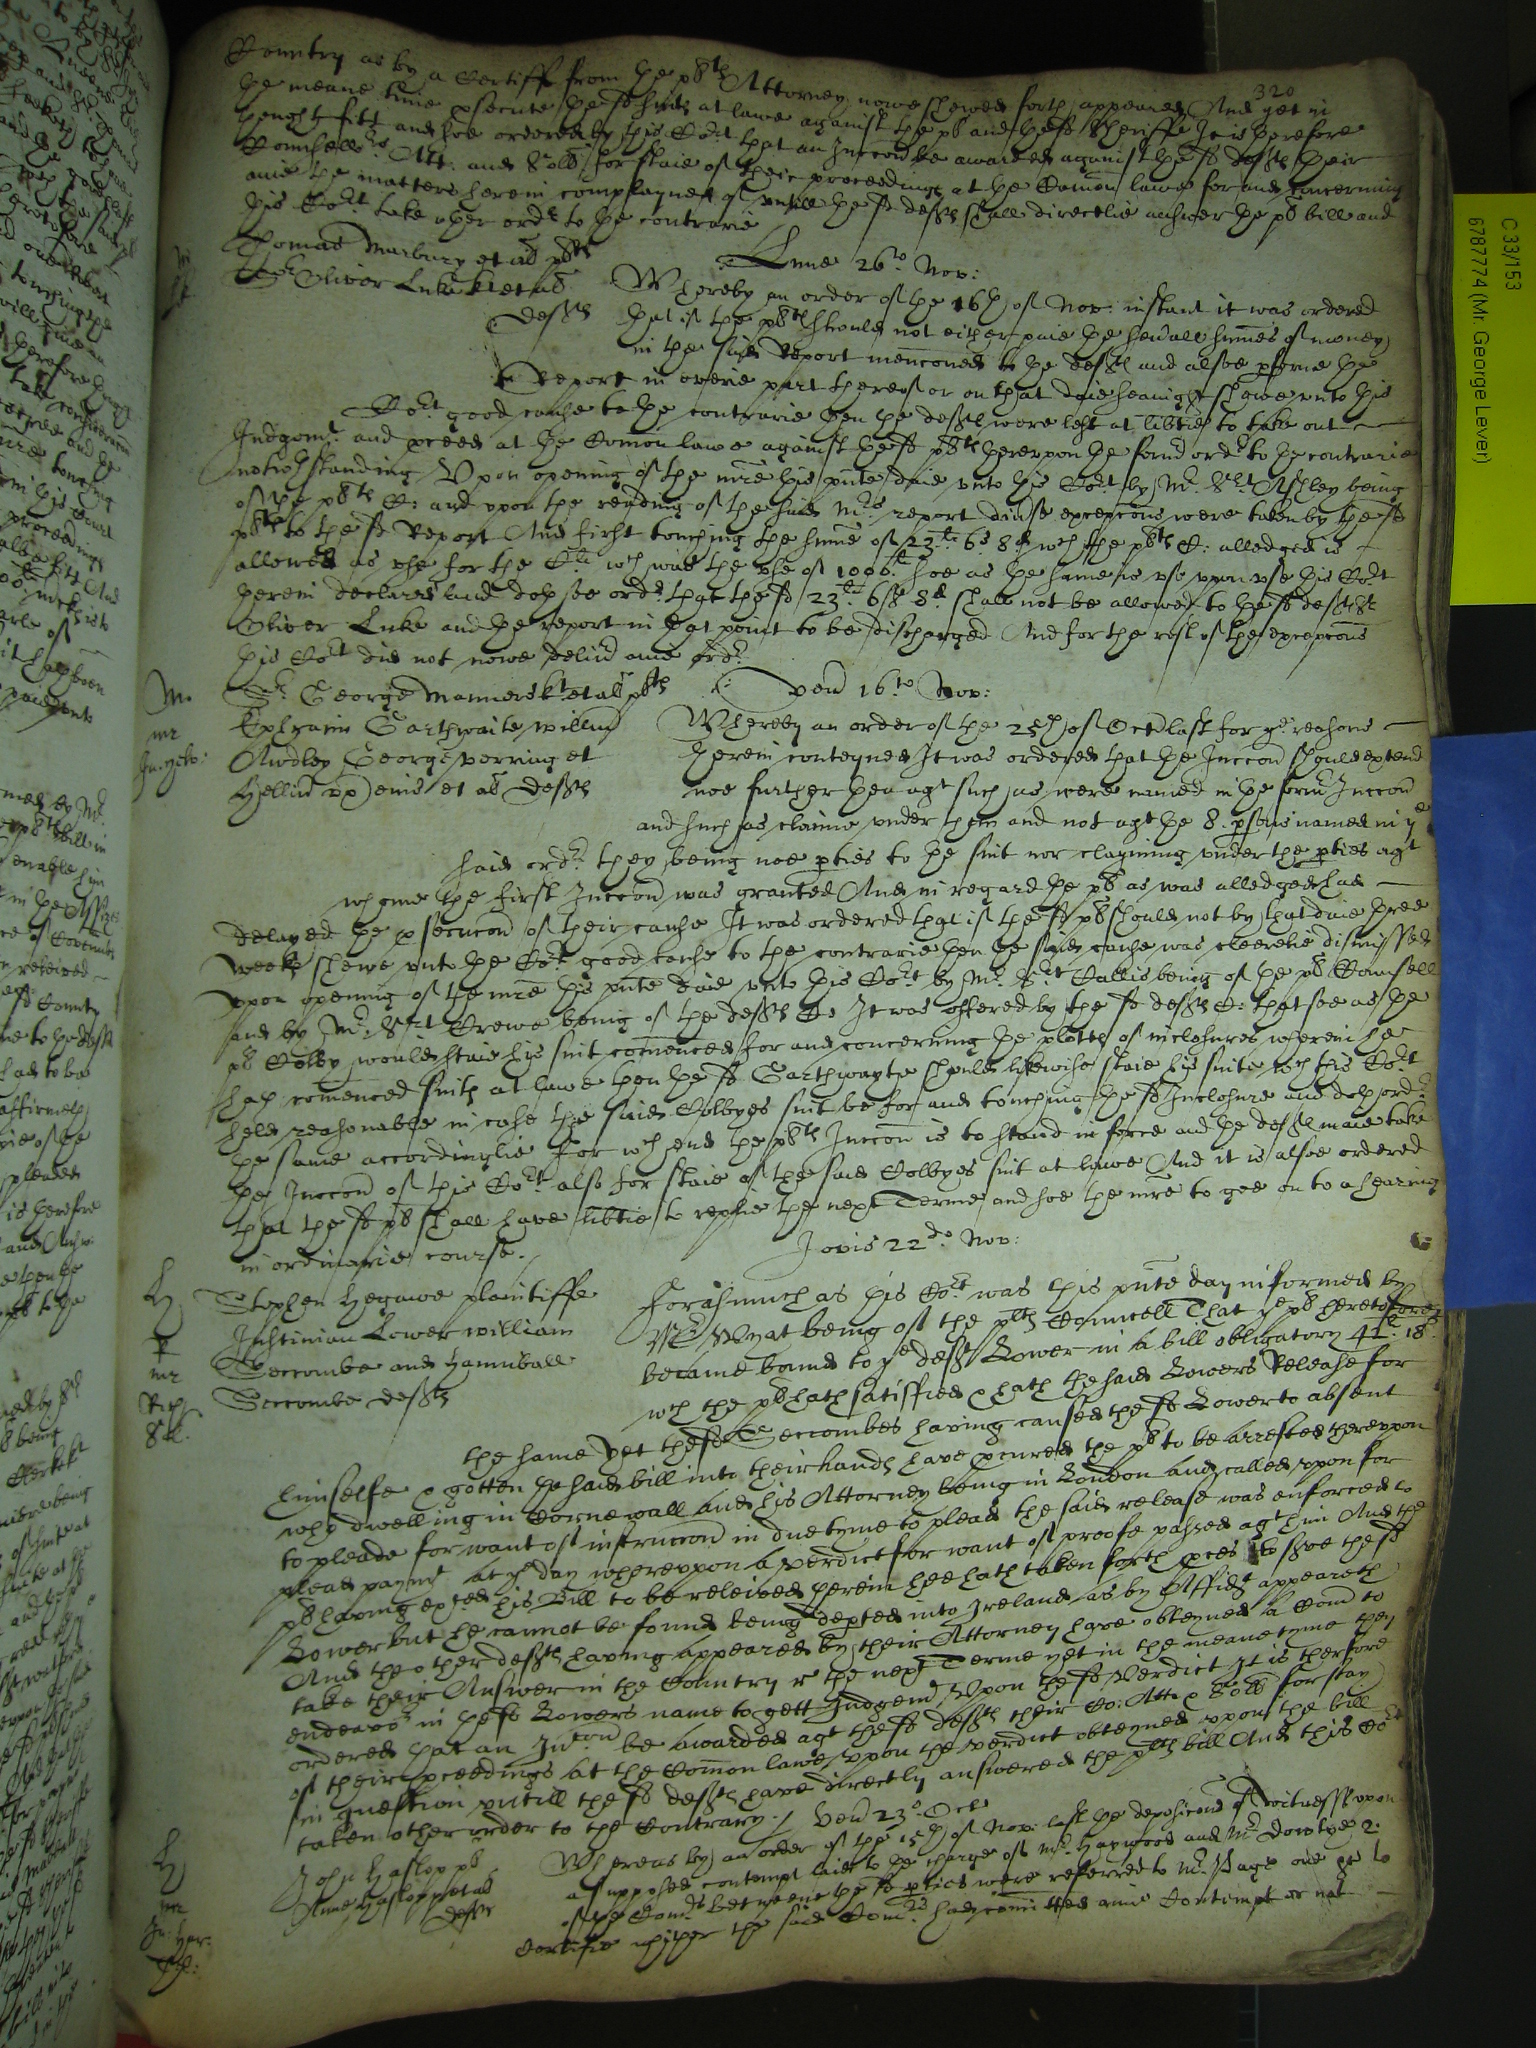 320
Country as by a Certiff from the plts Attorney nowe shewed forth appeared And yet in
the meane time psecute the sd suits at lawe against the pl and the sd Sheriffe It is therefore
thought fitt and soe ordered by this Cort that an Inccon be awarded against the sd defts their
Councellrs Att: and Sollrs for staie of their proceedings at the Comon lawe for and concerning
anie the matters herein complayned of untill the sd defts shall directlie answer the pl bill and
this Cort take other ordr to the contrarie
Lune 26o Nov:
Thomas Marbury et al plts
Sr Oliver Luke kt et al
defts
Whereby an order of the 16th of Nov: instant it was ordered
that if the plts should not either paie the sevall summes of money
in the said Report menconed to the defts and alsoe pforme the
sd Report in everie part thereof or on that daie seavnight shewe unto this
Cort good cause to the contrarie then the defts were left at libtie to take out
Judgemt and pceed at the Comon lawe against the sd plts hereupon the former ordr to the contrarie
notwithstanding Upon opening of the mre this pnte daie unto this Cort by Mr Sert Ashley being
of the plts C: and upon the reading of the said Mrs report divse excepcons were taken by the sd
plts to the sd Report And first touching the summe of 23li 6s 8d wch the plts C: alledged is
allowed as use for the wch was the use of 1000li soe as the same is use upon use this Cort
herein declared and doth soe ordr that the sd 23li 6s 8d shall not be allowed to the sd deft Sr
Oliver Luke and the report in that point to be discharged And for the rest of the excepcons
this Cort did not nowe deliver anie ordr
Ven 16to Nov:
Sr George Manners kt et al plts
Ephraim Garthwaite willm
Audley George perring et
et al defts
Whereby an order of the 25th of Oct last for ye reasons
herein conteyned It was ordered that the Inccon should extend
noe further then agt such as were named in the former Inccon
and such as claime under them and not agt the 8. psons named in ye
said ordr they being noe pties to the suit nor clayming under the pties agt
whome the first Inccon was granted And in regard the pl as was alledged had
delayed the psecucon of their cause It was ordered that if the sd pl should not by that daie three
weeks shewe unto the Cort good cause to the contrarie then the said cause was cleerelie dismissed
Upon opening of the mre this pnte daie unto this Cort by Mr Sert Callis being of the pl Counsell
and by Mr Sert Crewe being of the defts C: It was offered by the sd defts C: that soe as the
pl Colby would staie his suit comenced for and concerning the plotts of inclosures wherein he
hath comenced suite at lawe then the sd Garthwayte should likewise staie his suite wch this Cort
held reasonable in case the said Colbyes suit be for and touching the sd Inclosure and doth ordr
the same accordinglie for wch end the plts Inccon is to stand in force and the defts maie take
the Inccon of this Cort also for staie of the said Colbyes suit at lawe And it is alsoe ordered
that the sd pl shall have libtie to replie the next Terme and soe the mre to goe on to a hearing
in ordinarie course.
Jovis 22do Nov:
Stephen Hegawe plaintiffe
Justinian Lower William
Seccombe and Hanniball
Seccombe defts
Forasmuch as this Cort was this pnte day informed by
Mr Wyat being of the plts Councell That ye pl heretofore
became bound to ye deft Lower in a bill obligatory 41l. 18s.
wch the pl hath satisfied & hath the said Lowers Release for
the same Yet the sd Seccombes having caused the sd Lower to absent
himselfe & gotten the said bill into their hands have pcured the pl to be arrested thereupon
who dwelling in Cornewall and his Attorney being in London and called upon for
to pleade for want of instruccon in due tyme to plead the said release was enforced to
plead paymt at ye day whereupon a verdict for want of proofe passed agt him And the
pl having exhibited his Bill to be releived herein hee hath taken forth pces to serve the sd
Lower but he cannot be found being depted into Ireland as by Affidt appeareth
And the other defts having appeared by their Attorney have obteyned a Comn to
take their Answer in the Country re the next Terme yet in the meane tyme they
endeavor in the sd Lowers name to gett Judgemt Upon the sd Verdict It is therfore
ordered that an Inccon be awarded agt the sd defts their Co: Att: & Sollrs for stay
of their pceedings at the Comon lawe upon the verdict obteyned upon the bill
in question untill the sd defts have directly answered the plts bill And this Cort
taken other order to the Contrary.
Ven 23o Octo
John Haslopp pl
Anne Haslopp et al
defts
Whereas by an order of the 15th of Nov: last the deposicons of witnesses upon
a supposed contempt laid to the charge of Mr Haywood and Mr Dowtye 2.
of the Comrs betweene the sd pties were referred to Mr Page one &c to
Certifie whether the said Comrs had comitted anie Contempt or not
C 33/153
6787774 (Mr. George Lever)